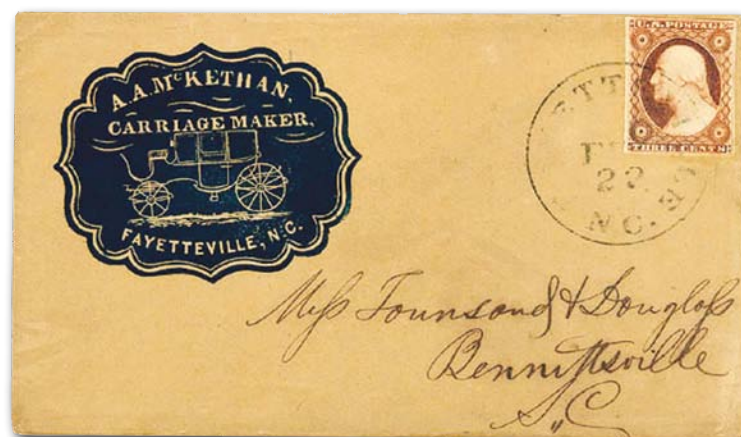 A.A. McKETHAN,
CARRIAGE MAKER,
FAYETTEVILLE, N.C.
U.S. POSTAGE
THREE CENTS
ETTEV
22
N.C.
Mess Townsend & Douglass
Bennettsville
S,,C